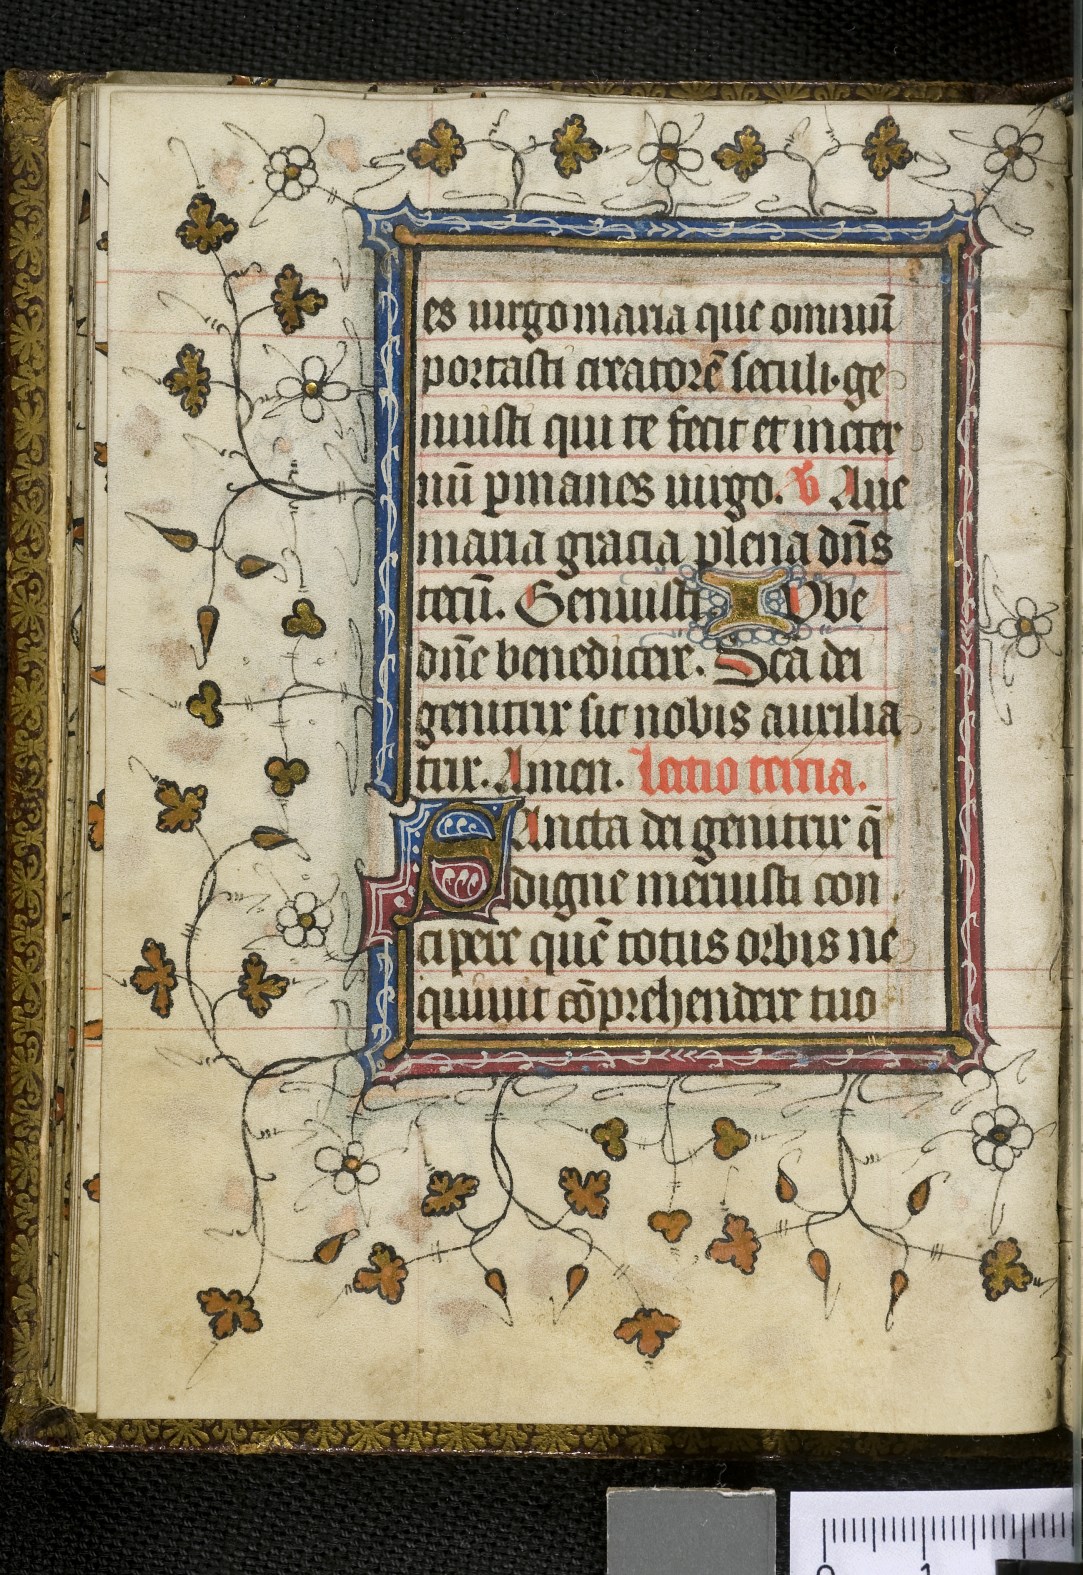 es uirgo maria que omniũ
portasti creatorẽ seculi · ge
nuisti qui te fecit et in eter
nũ ꝑmanes uirgo. ℣ Aue
maria gracia plena dn̄s
tecũ. Genuisti Iube
dn̄e benedicere. Sc̄a dei
genitrix sit nobis auxilia
trix. Amen. Lectio tercia.
SAncta dei genitrix q̄
digne meruisti con
cipere quẽ totus orbis ne
quiuit cõprehendere tuo
0 1